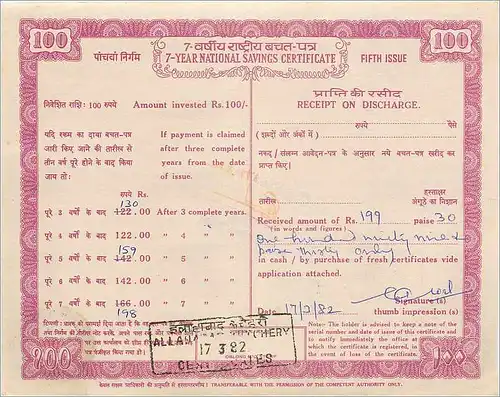 100
7-वर्षीय राष्ट्रीय बचत-पत्र
7-YEAR NATIONAL SAVINGS CERTIFICATE
100
पांचवां निर्गम
FIFTH ISSUE
निवेशित राशि: 100 रुपये
Amount invested Rs. 100/-
यदि रकम का दावा बचत-पत्र
जारी किए जाने की तारीख से
तीन वर्ष पूरे होने के बाद किया
जाय तो:
If payment is claimed
after three complete
years from the date
of issue.
रुपये Rs.
130
पूरे 3 वर्षों के बाद 122.00 After 3 complete years.
पूरे 4 वर्षों के बाद 122.00 " 4 " "
159
पूरे 5 वर्षों के बाद 142.00 " 5 " "
पूरे 6 वर्षों के बाद 142.00 " 6 " "
पूरे 7 वर्षों के बाद 166.00 " 7 " "
198
प्राप्ति की रसीद
RECEIPT ON DISCHARGE.
रुपये पैसे
(शब्दों और अंकों में)
नकद / संलग्न आवेदन-पत्र के अनुसार नये बचत-पत्र खरीद कर
प्राप्त किए।
हस्ताक्षर
तारीख अंगूठे का निशान
Received amount of Rs. 199 paise 30
(in words and figures)
one hundred ninety nine &
paise thirty only
in cash / by purchase of fresh certificates vide
application attached.
Signature (s)
Date 17/3/82 thumb impression (s)
17 3 82
Note: The holder is advised to keep a note of the
serial number and date of issue of this certificate and
to notify immediately the office at which
the certificate is registered, in
the event of loss of the certificate.
१००
१००
केवल सक्षम प्राधिकारी की अनुमति से हस्तान्तरणीय। TRANSFERABLE WITH THE PERMISSION OF THE COMPETENT AUTHORITY ONLY.